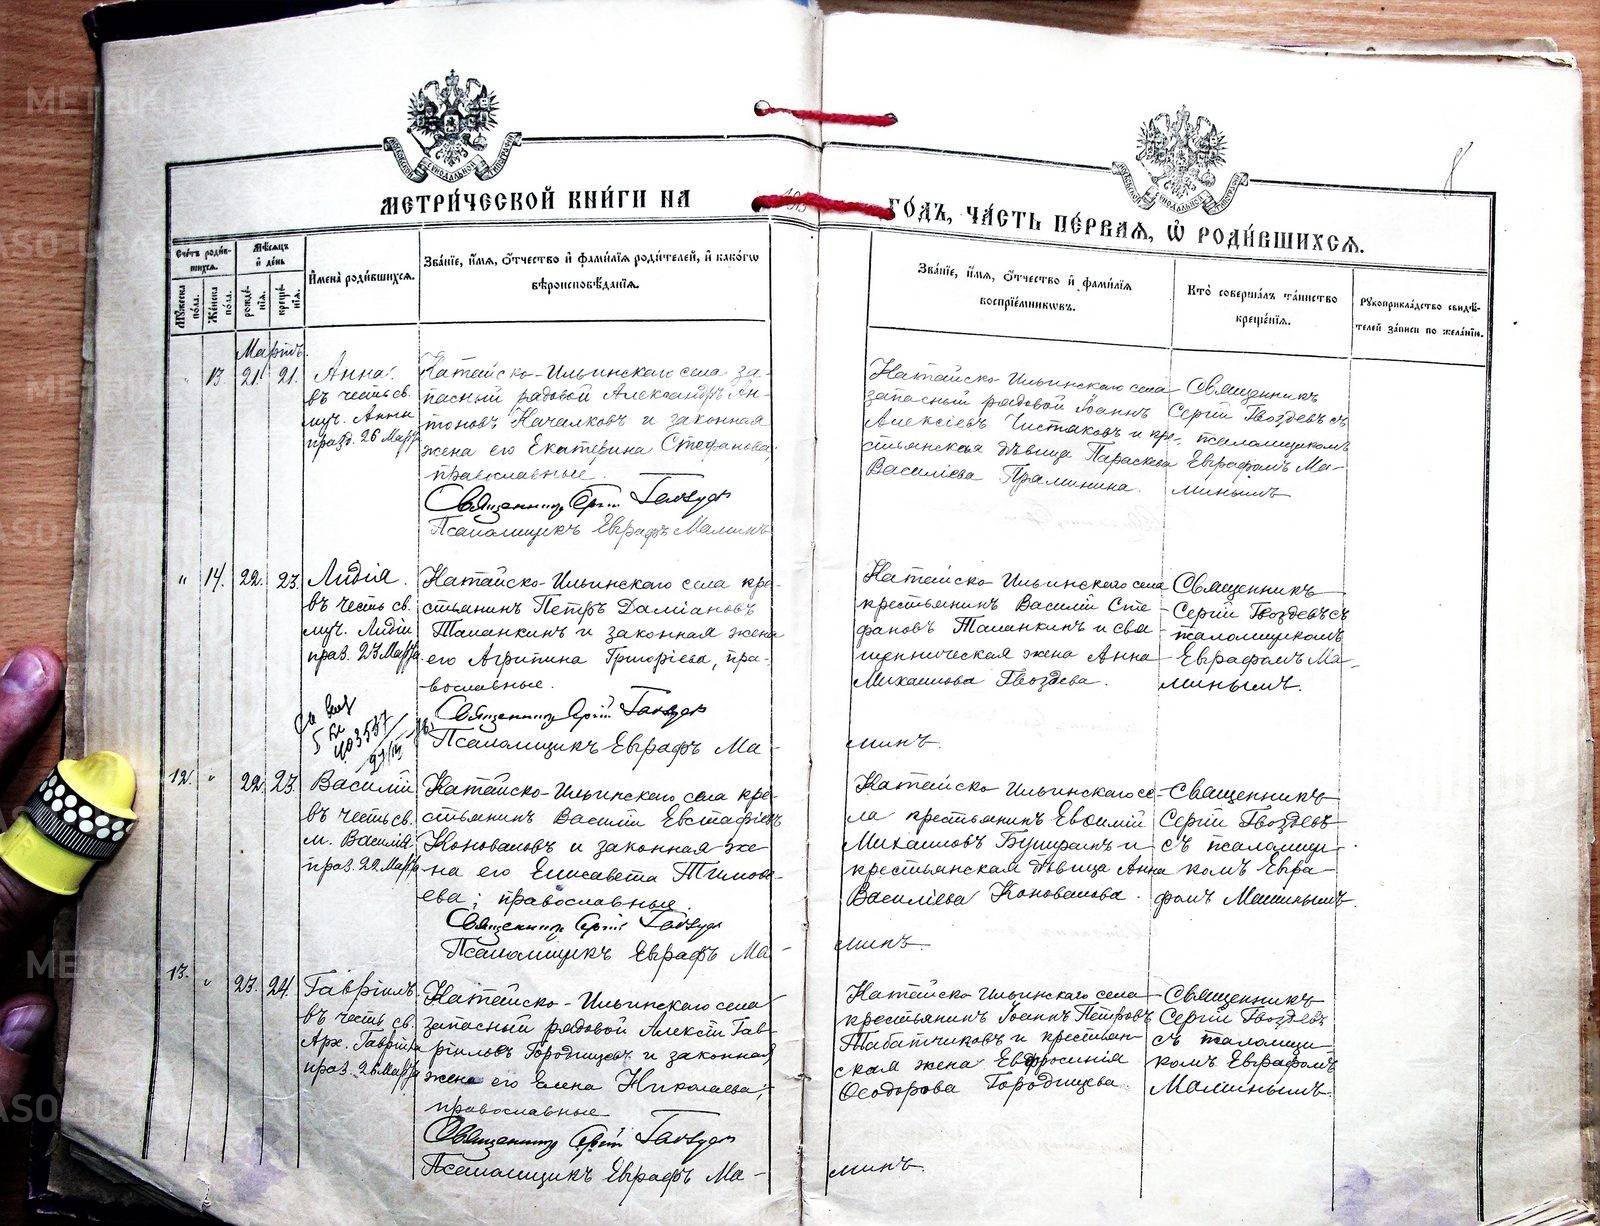 МЕТРИ́ЧЕСКОЙ КНИ́ГИ НА
ГО́ДЪ, ЧА́СТЬ ПЕ́РВАЯ, Ѡ҆ РОДИ́ВШИХСЯ.
8
Сче́тъ роди́в-
шихся.
Му́жеска по́ла.
Же́нска по́ла.
Мѣ́сяцъ
и҆ де́нь
рожде́-
нїя.
креще́-
нїя.
И҆мена̀ роди́вшихся.
Зва́нїе, и҆́мя, ѻ҆́тчество и҆ фами́лїя роди́телей, и҆ како́гѡ
вѣроисповѣ́данїя.
Зва́нїе, и҆́мя, ѻ҆́тчество и҆ фами́лїя
воспрїе́мникѡвъ.
Кто̀ соверша́лъ та́инство
креще́нїя.
Рꙋкоприкла́дство свидѣ́-
телей за́писи по жела́нїю.
Мартъ.
" 13. 21. 21.
Анна.
въ честь св.
муч. Анны
празд. 26 Марта
Катайско-Ильинскаго села за-
пасный рядовой Александръ Ан-
тоновъ Качалковъ и законная
жена его Екатерина Стефанова,
православные.
Священникъ Сергій Гвоздевъ
Псаломщикъ Евграфъ Маминъ
Катайско-Ильинскаго села
запасный рядовой Іоаннъ
Алексіевъ Чистяковъ и кре-
стьянская дѣвица Параскева
Василіева Прямина.
Священникъ
Сергій Гвоздевъ съ
псаломщикомъ
Евграфомъ Ма-
минымъ
" 14. 22. 23.
Лидія.
въ честь св.
муч. Лидіи
праз. 23 Марта
Катайско-Ильинскаго села кре-
стьянинъ Петръ Даміановъ
Таланкинъ и законная жена
его Агрипина Григоріева, пра-
вославные.
Священникъ Сергій Гвоздевъ
Псаломщикъ Евграфъ Ма-
минъ.
Катайско-Ильинскаго села
крестьянинъ Василій Сте
фановъ Таланкинъ и свя-
щенническая жена Анна
Михаилова Гвоздева.
Священникъ
Сергій Гвоздевъ съ
псаломщикомъ
Евграфомъ Ма-
минымъ.
12. " 22. 23.
Василій
въ честь св.
м. Василія
праз. 22 Марта
Катайско-Ильинскаго села кре-
стьянинъ Василій Евстафіевъ
Коноваловъ и законная же-
на его Елисавета Тимоѳ-
еева; православные.
Священникъ Сергій Гвоздевъ
Псаломщикъ Евграфъ Ма-
минъ.
Катайско-Ильинскаго се-
ла крестьянинъ Евѳимій
Михаиловъ и
крестьянская дѣвица Анна
Василіева Коновалова.
Священникъ
Сергій Гвоздевъ
съ псаломщи-
комъ Евгра-
фомъ Маминымъ.
13. " 23. 24.
Гавріилъ
въ честь св.
Арх. Гавріила
праз. 26 Марта
Катайско-Ильинскаго села
запасный рядовой Алексій Гав-
ріиловъ Городищевъ и законная
жена его Елена Николаева;
православные
Священникъ Сергій Гвоздевъ
Псаломщикъ Евграфъ Ма-
минъ.
Катайско-Ильинскаго села
крестьянинъ Іоаннъ Петровъ
Табатчиковъ и крестьян-
ская жена Евфросинія
Ѳеодорова Городищева.
Священникъ
Сергій Гвоздевъ
съ псаломщи
комъ Евграфомъ
Маминымъ.